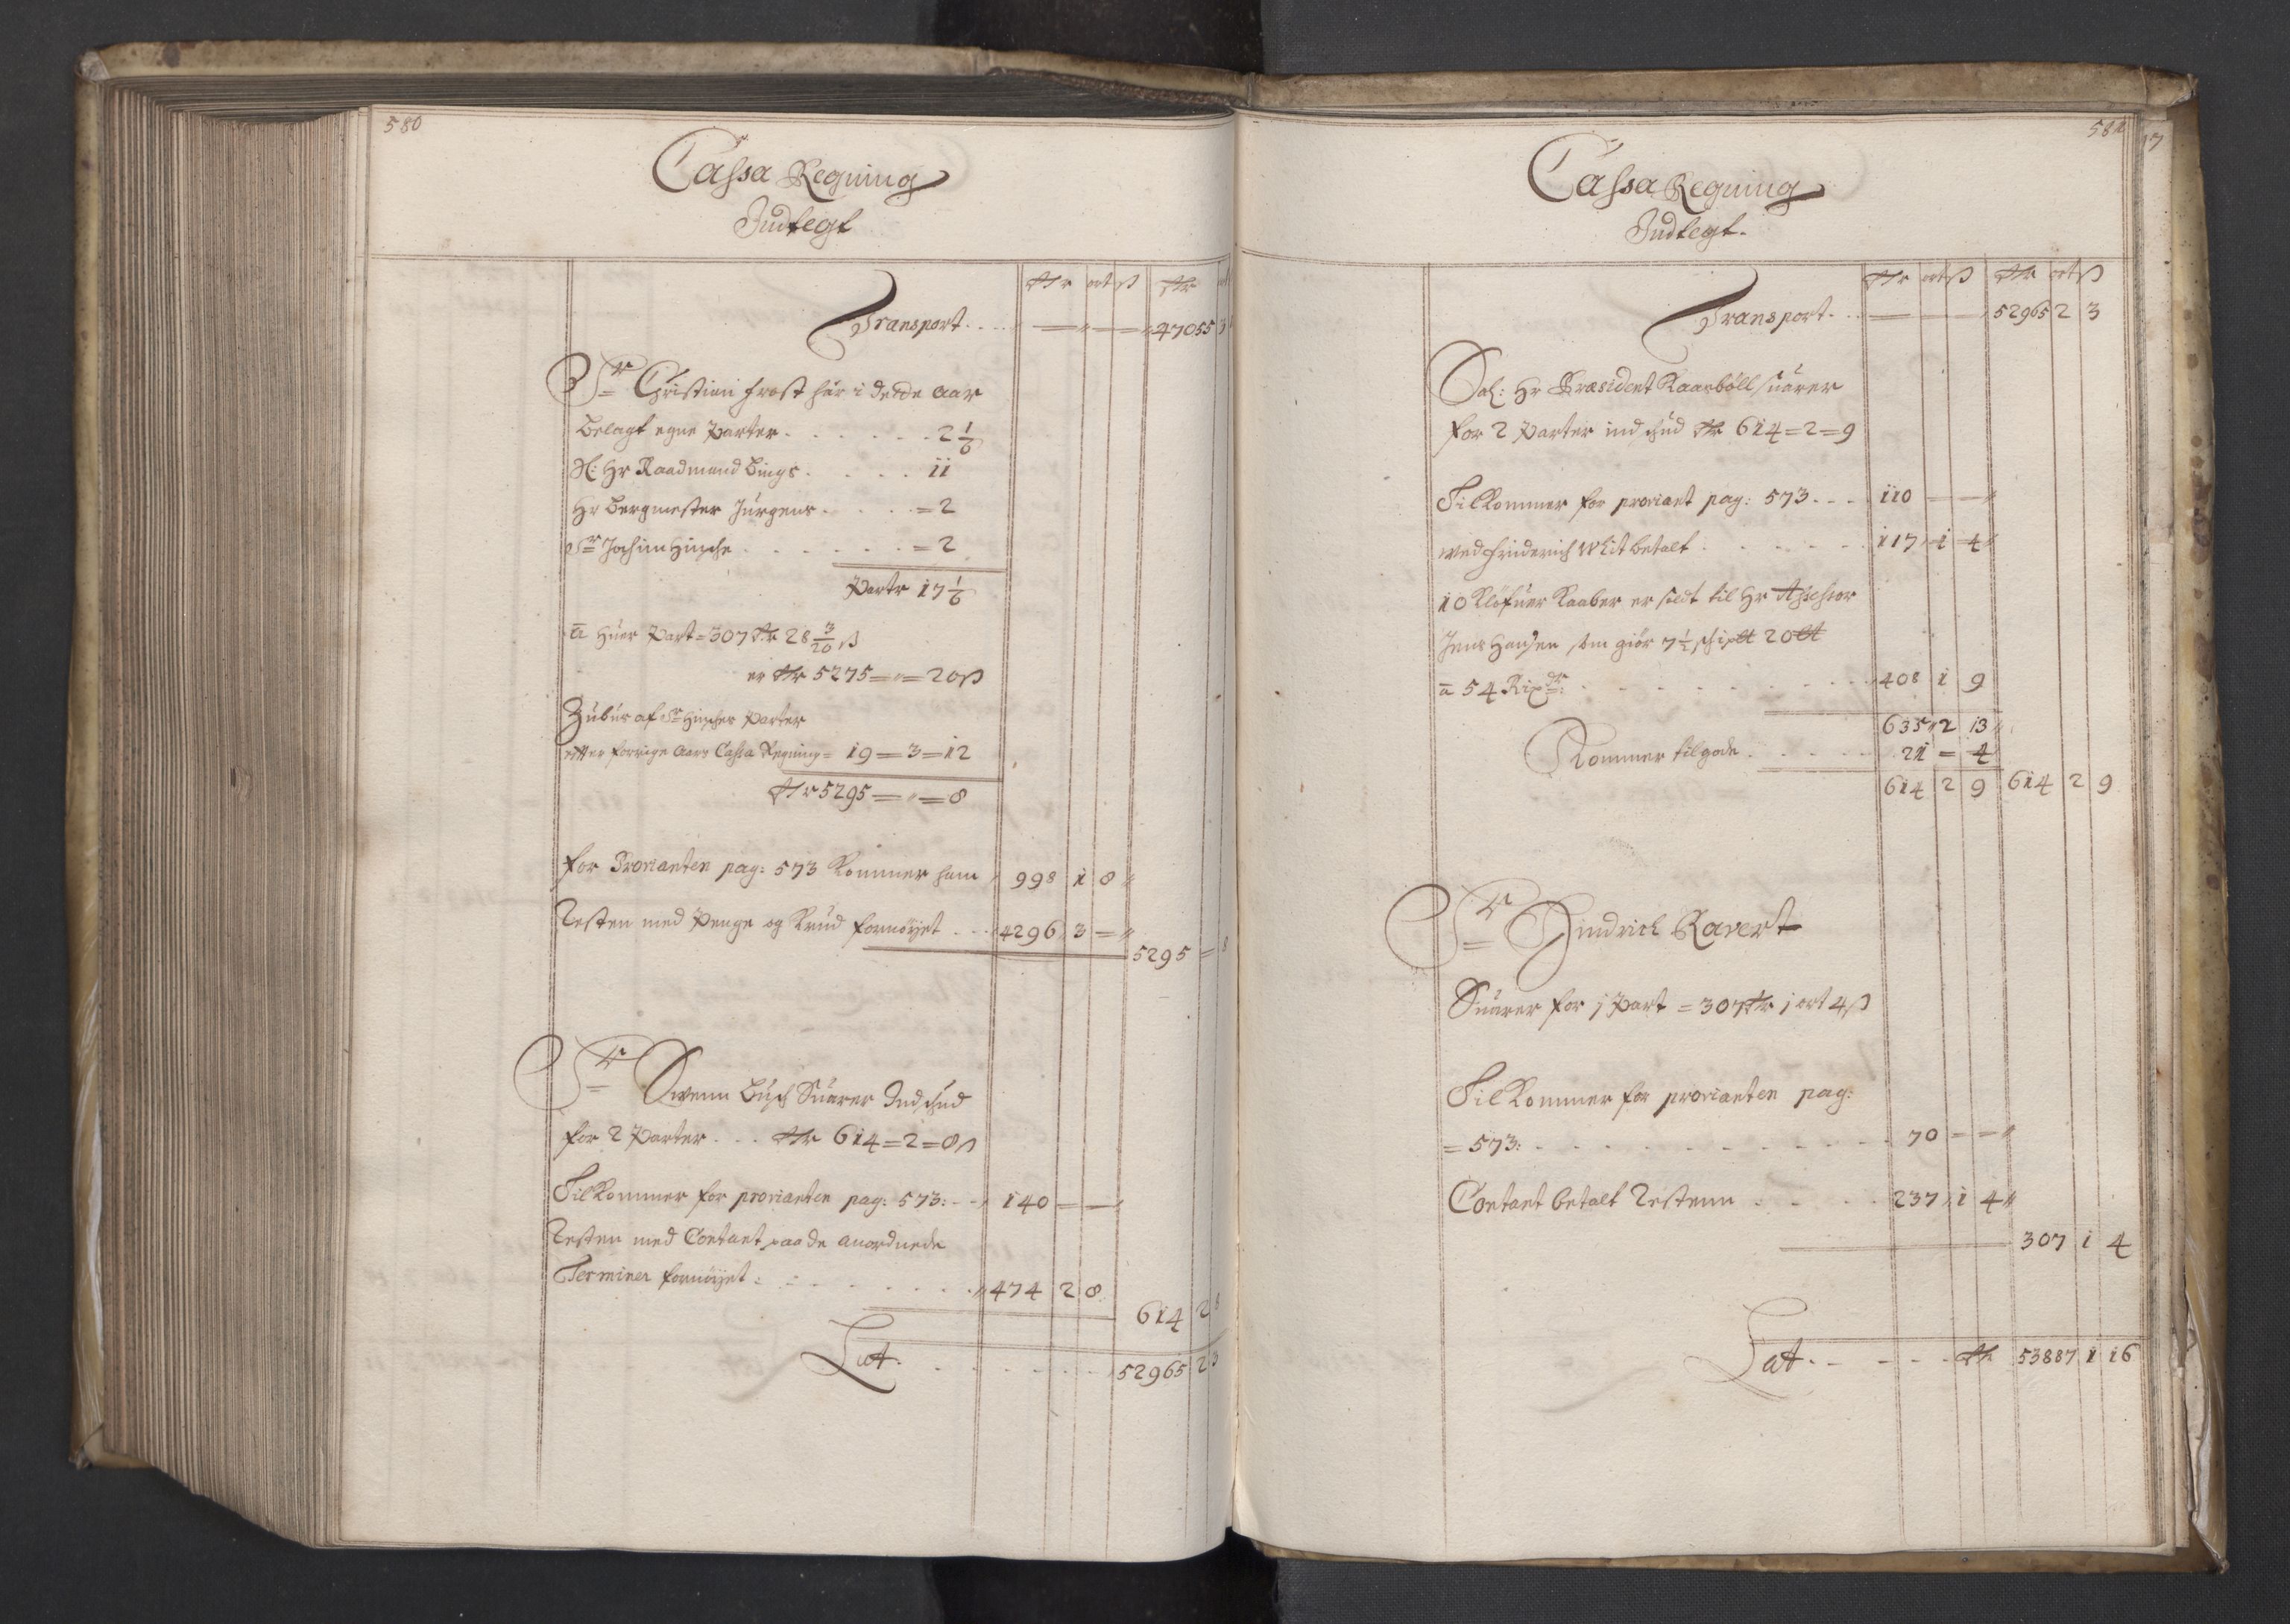 580
Cassa Regning
Indtegt
dlr ort ß dlr ort
Transport . . . . — " — " 47055 3
Sr Christian Frost har i dette Aar
belagt egne Parter . . . . . . 2 1/6
Sl: Hr Raadmand Bings . . . . . 11
Hr Bergmester Jürgens . . . . = 2
Sr Jochim Hinsche . . . . . . = 2
Partr 17 1/6
a Huer Part = 307 dlr 28 3/20 ß
er dlr 5275 = " = 20 ß
Zubus af Sr Hinsches Parter
efter forrige Aars Cassa Regning = 19 = 3 = 12
dlr 5295 = " = 8
for Provianten pag: 573 Kommer ham 998 1 8
Resten med Penge og Krud fornøyet . . . 4296 3 =
5295 = 8
Sr Swenn Busch Suarer Indschud
for 2 Parter . . . dlr 614 = 2 = 8 ß
Tilkommer for provianten pag: 573: - - 140 — —
Resten med Contant paa de anordnede
Terminer fornøyet : . . . . . . . 474 2 8
614 2 8
Lat. . . . . . . . 52965 2 3
581
17
Cassa Regning
Indtegt.
dlr ort ß dlr ort ß
Transport. . . — — — 52965 2 3
Sal: Hr Præsident Kaasbøll suarer
for 2 Parter indschud dlr 614 = 2 = 9
Tilkommer for proviant pag: 573 . . . 110 — —
wed Friderich Whit betalt . . . . . 117 1 4
10 Kløfuer Kaaber er soldt til Hr Assessor
Jens Hansen som giør 7 1/2 schipt 20 lt
a 54 Rixdr: . . . . . . . . . . 408 1 9
635 2 13
Kommer tilgode . . . . . 21 = 4
614 2 9 614 2 9
Sr Hindrich Ravert
Suarer for j Part = 307 dlr j ort 4 ß
Tilkommer for provianten pag:
= 573: . . . . . . . . . . 70 = =
Contant betalt Restenn . . . . 237 1 4
307 1 4
Lat. - - - - dlr 53887 1 16